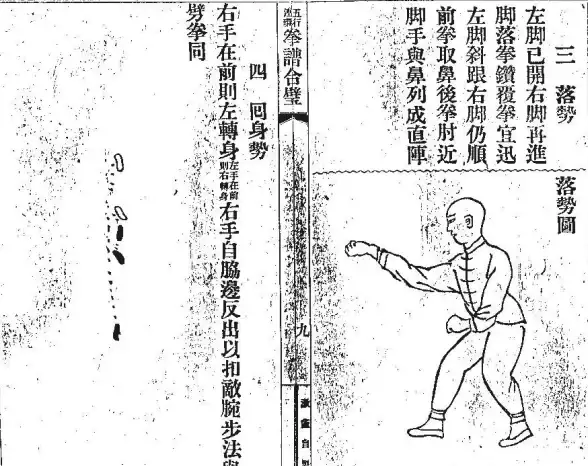 三 落勢
左脚已開右脚再進
脚落拳鑽覆拳宜迅
左脚斜跟右脚仍順
前拳取鼻後拳肘近
脚手與鼻列成直陣
落勢圖
五行
拳譜合璧
九
四 囘身勢
右手在前則左轉身左手在前則右轉身右手自脇邊反出以扣敵腕步法與
劈拳同